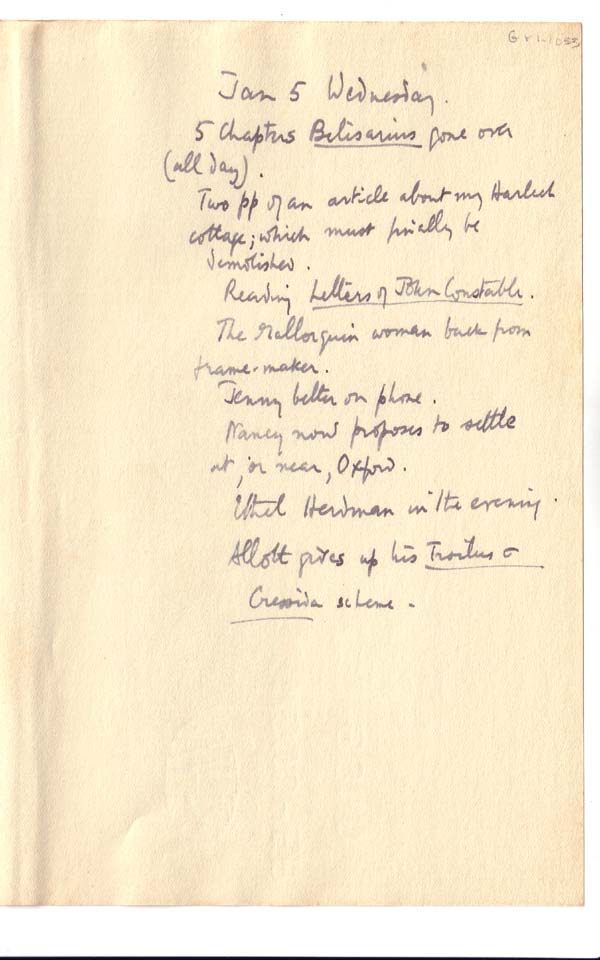 Jan 5 Wednesday.
5 Chapters Belisarius gone over
(all day).
Two pp of an article about my Harlech
cottage; which must finally be
demolished.
Reading Letters of John Constable.
The Mallorquin woman back from
frame-maker.
Jenny better on phone.
Nancy now proposes to settle
at, or near, Oxford.
Ethel Herdman in the evening.
Allott gives up his Troilus &
Cressida scheme.